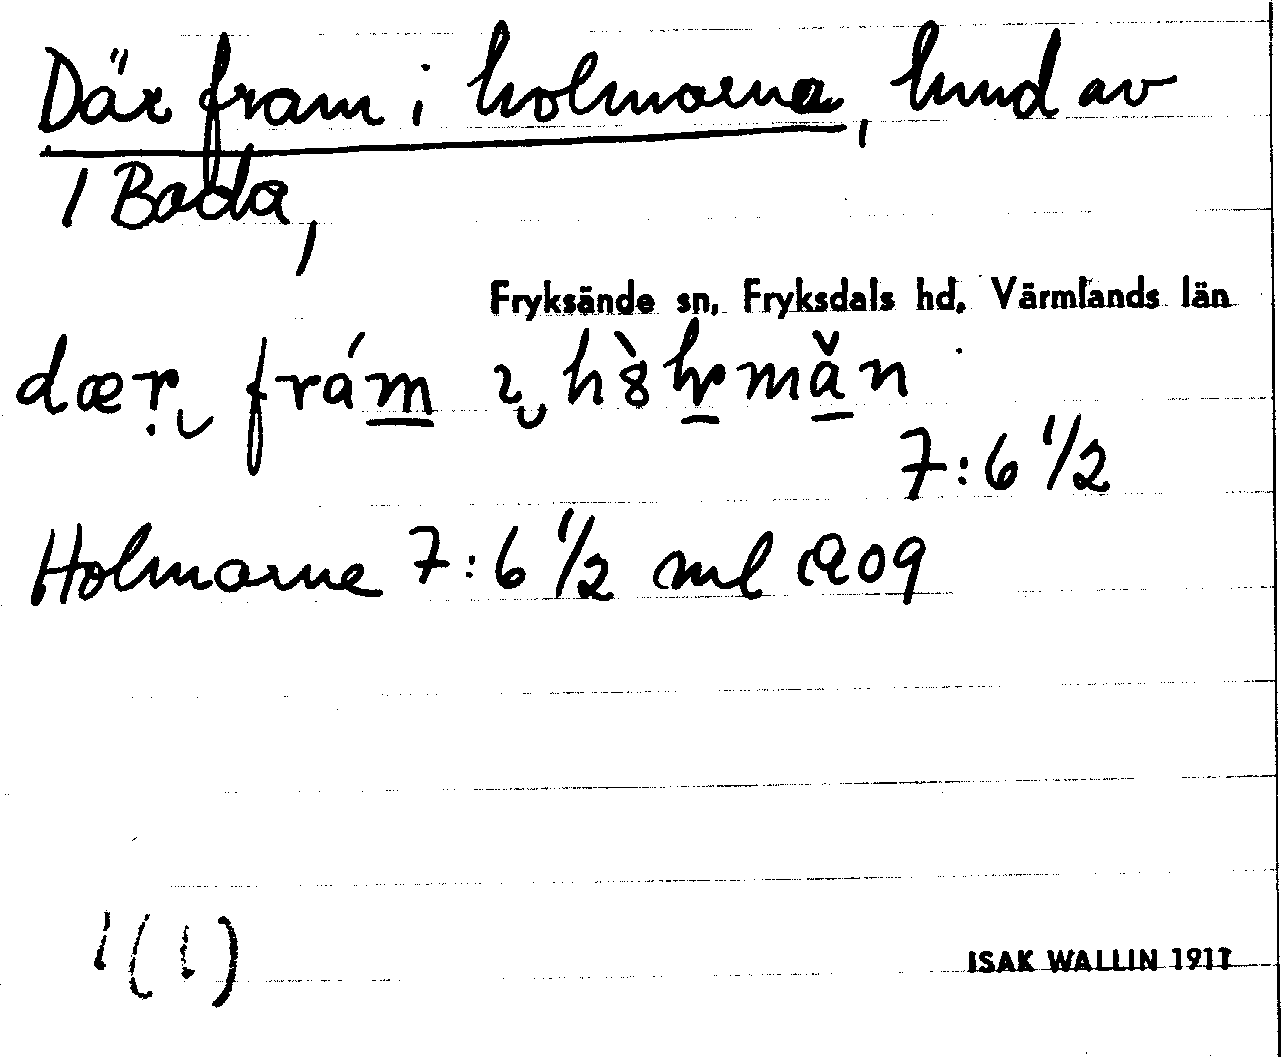 Där fram i holmarna, hmd av
1 Bada,
Fryksände sn, Fryksdals hd, Värmlands län
7:6 1/2
Holmarne 7:6 1/2 ml
1(1)
ISAK WALLIN 1911